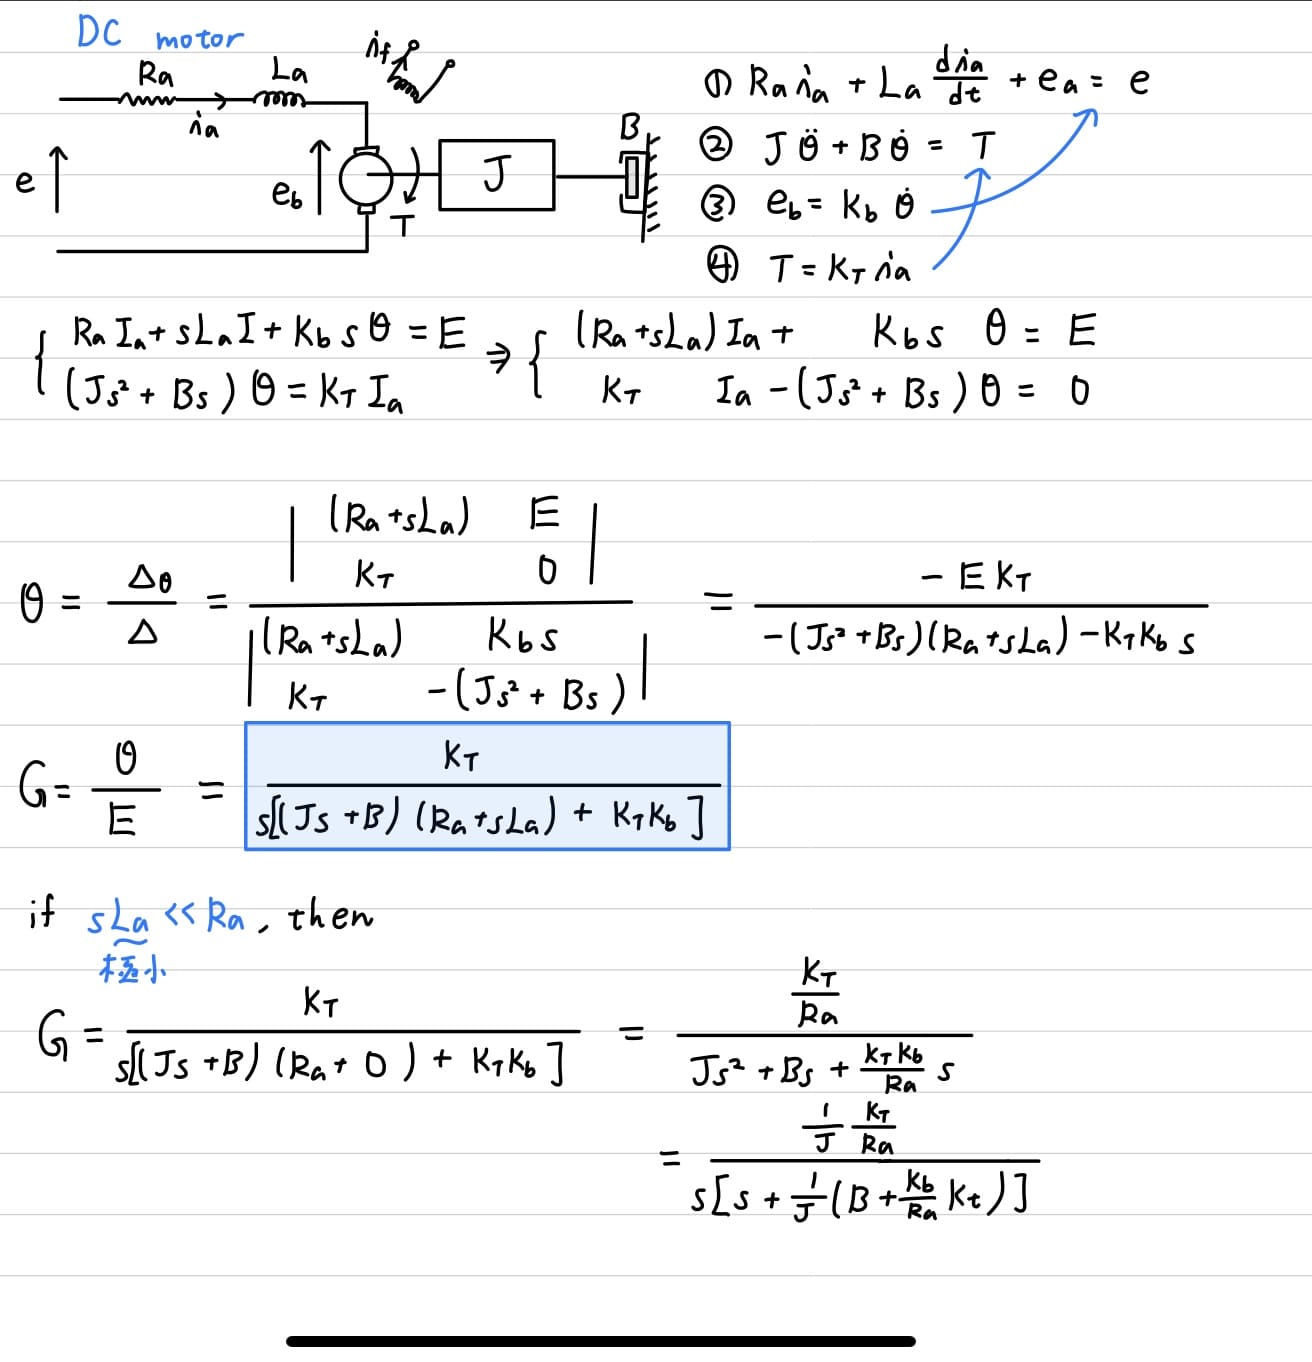 DC motor
Ra La if
ia
e eb T J B
① Ra ia + La dia/dt + ea = e
② J θ̈ + B θ̇ = T
③ eb = Kb θ̇
④ T = KT ia
{ Ra Ia + sLa I + Kb s θ = E ⇒ { (Ra + sLa) Ia + Kb s θ = E
(Js² + Bs) θ = KT Ia KT Ia - (Js² + Bs) θ = 0
θ = Δθ/Δ = | (Ra + sLa) E ; KT 0 | / | (Ra + sLa) Kb s ; KT -(Js² + Bs) | = -E KT / -(Js² + Bs)(Ra + sLa) - KT Kb s
G = θ/E = KT / s[(Js + B) (Ra + sLa) + KT Kb]
if sLa << Ra, then
極小
G = KT / s[(Js + B) (Ra + 0) + KT Kb] = KT/Ra / Js² + Bs + KT Kb/Ra s
= 1/J KT/Ra / s[s + 1/J (B + Kb/Ra Kt)]